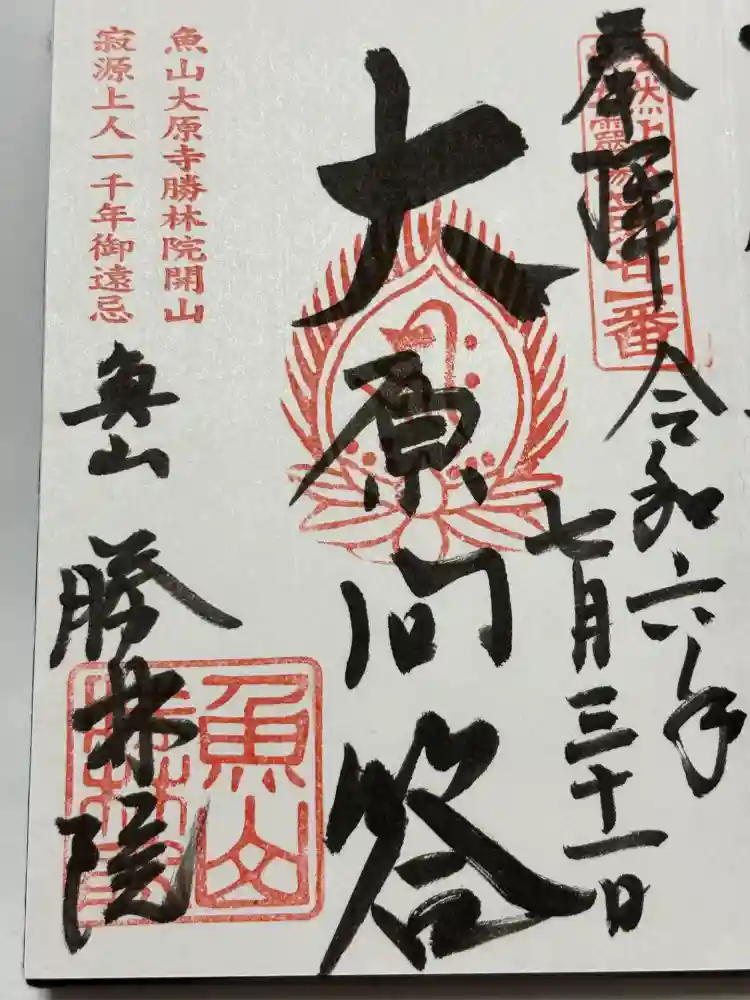 奉拝
法然上人霊場第廿一番
令和六年
七月三十一日
大原問答
魚山大原寺勝林院開山
寂源上人一千年御遠忌
魚山
勝林院
魚山
勝林院